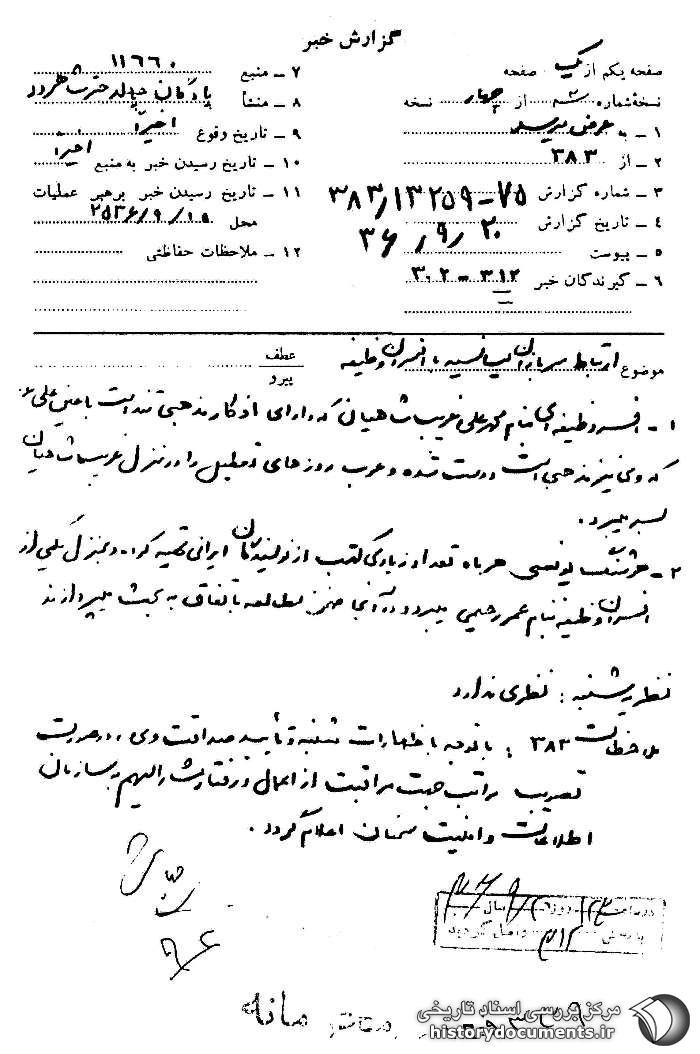 گزارش خبر
صفحه یکم از یک صفحه
نسخه شماره ۳ از چهار نسخه
۱ ـ به عرض میرسد
۲ ـ از ۳۸۳
۳ ـ شماره گزارش ۳۸۳/۱۳۲۵۹-۷۵
۴ ـ تاریخ گزارش ۳۶/۹/۲۰
۵ ـ پیوست
۶ ـ گیرندگان خبر ۳۱۲ - ۳۰۲
۷ ـ منبع ۱۱۶۶۰
۸ ـ منشأ پادگان چهلدختر شاهرود
۹ ـ تاریخ وقوع اخیراً
۱۰ ـ تاریخ رسیدن خبر به منبع اخیراً
۱۱ ـ تاریخ رسیدن خبر برهبر عملیات
محل ۲۵۳۶/۹/۱۵
۱۲ ـ ملاحظات حفاظتی
موضوع ارتباط سربازان لیسانسیه با افسران وظیفه
عطف
پیرو
۱ - افسر وظیفه ای بنام محمد علی غریب شاهیان که دارای افکار مذهبی تند است با علی
که وی نیز مذهبی است دوست شده و روزهای تعطیل را در منزل غریب شاهیان
بسر میبرد.
۲ - هوشنگ یونسی هر ماه تعداد زیادی کتب از نویسندگان ایرانی تهیه کرده و بمنزل یکی از
افسران وظیفه بنام عمر رحیمی میبرد و در آنجا ضمن مطالعه باتفاق به بحث میپردازند
نظریه شنبه : نظری ندارد
ملاحظات ۳۸۳ : با توجه باظهارات شنبه و تأیید صداقت وی ، در صورت
تصویب مراتب جهت مراقبت از اعمال و رفتار مشارالیهم به سازمان
اطلاعات و امنیت سمنان اعلام گردد .
در ساعت روز سال
به بخش ۳۱۲ واصل گردید
مرکز بررسی اسناد تاریخی
historydocuments.ir